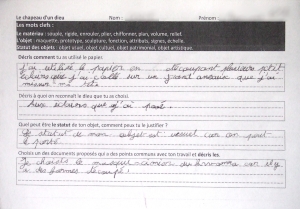 Le chapeau d'un dieu Nom : Prénom :
Les mots clefs :
Le matériau : souple, rigide, enrouler, plier, chiffonner, plan, volume, relief.
L'objet : maquette, prototype, sculpture, fonction, attributs, signes, échelle.
Statut des objets : objet usuel, objet culturel, objet patrimonial, objet artistique.
Décris comment tu as utilisé le papier.
J'ai utilisé le papier en découpant plusieurs petit
que j'ai collé sur un grand que j'ai
ma tete
Décris à quoi on reconnaît le dieu que tu as choisi.
Aux que j'ai posé.
Quel peut être le statut de ton objet, comment peux tu le justifier ?
Le statut de mon objet est usuel car on peut
le porté
Choisis un des documents proposés qui a des points communs avec ton travail et décris les.
Je choisis le masque cimier car il y
a des formes découpé